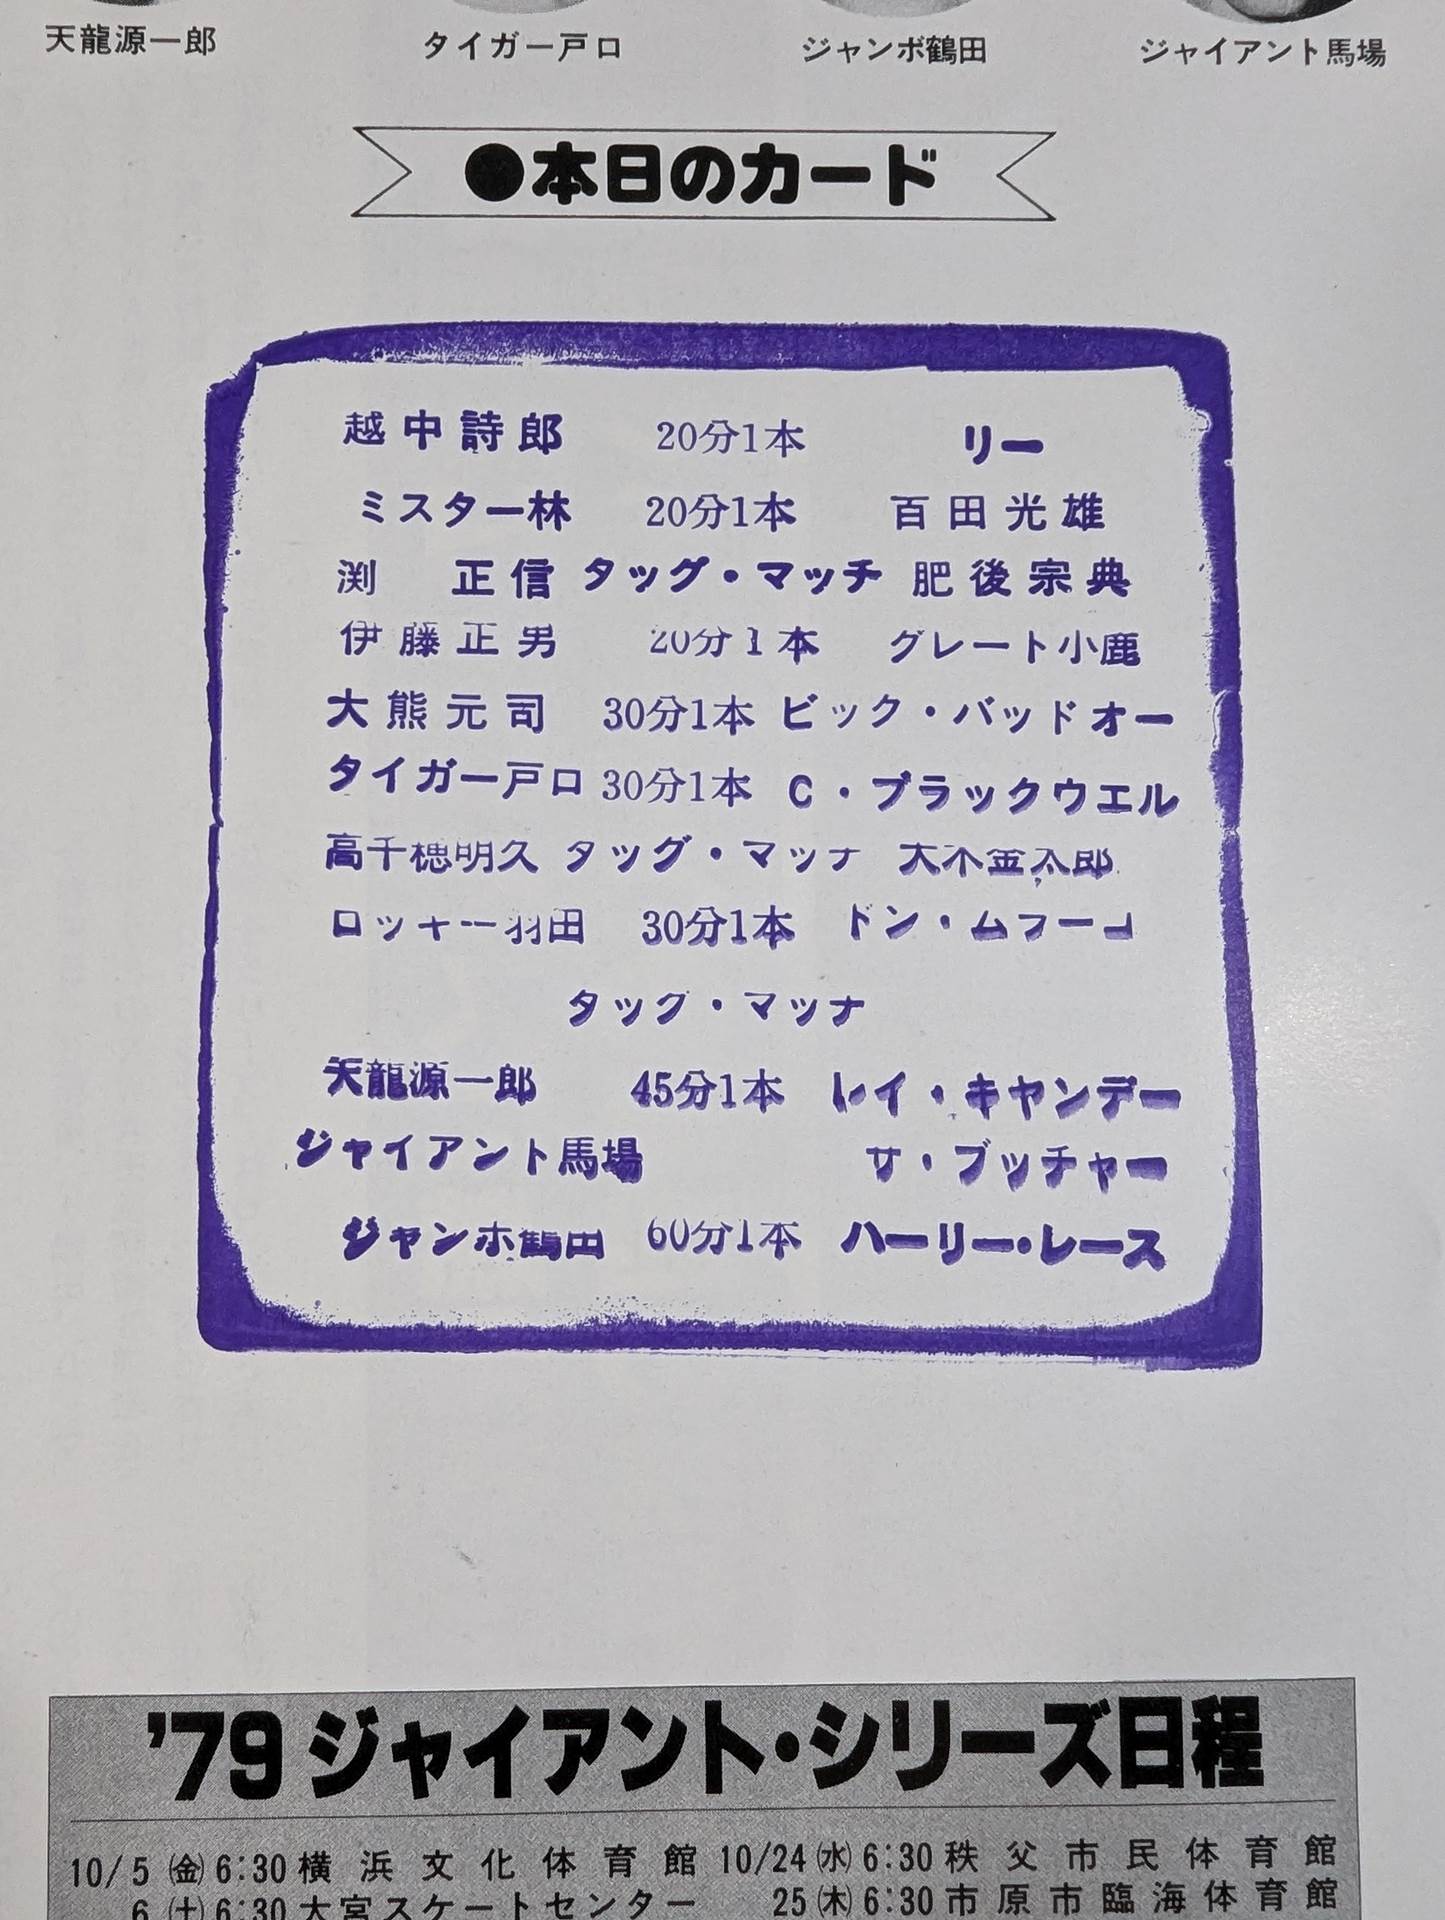 天龍源一郎 タイガー戸口 ジャンボ鶴田 ジャイアント馬場
●本日のカード
越中詩郎 20分1本 リー
ミスター林 20分1本 百田光雄
渕 正信 タッグ・マッチ 肥後宗典
伊藤正男 20分1本 グレート小鹿
大熊元司 30分1本 ビック・バッドオー
タイガー戸口 30分1本 C・ブラックウエル
高千穂明久 タッグ・マッチ 大木金太郎
ロッキー羽田 30分1本 ドン・ムラーコ
タッグ・マッチ
天龍源一郎 45分1本 レイ・キャンデー
ジャイアント馬場 ザ・ブッチャー
ジャンボ鶴田 60分1本 ハーリー・レース
'79ジャイアント・シリーズ日程
10/5㈮6:30横浜文化体育館 10/24㈬6:30秩父市民体育館
6㈯6:30大宮スケートセンター 25㈭6:30市原市臨海体育館